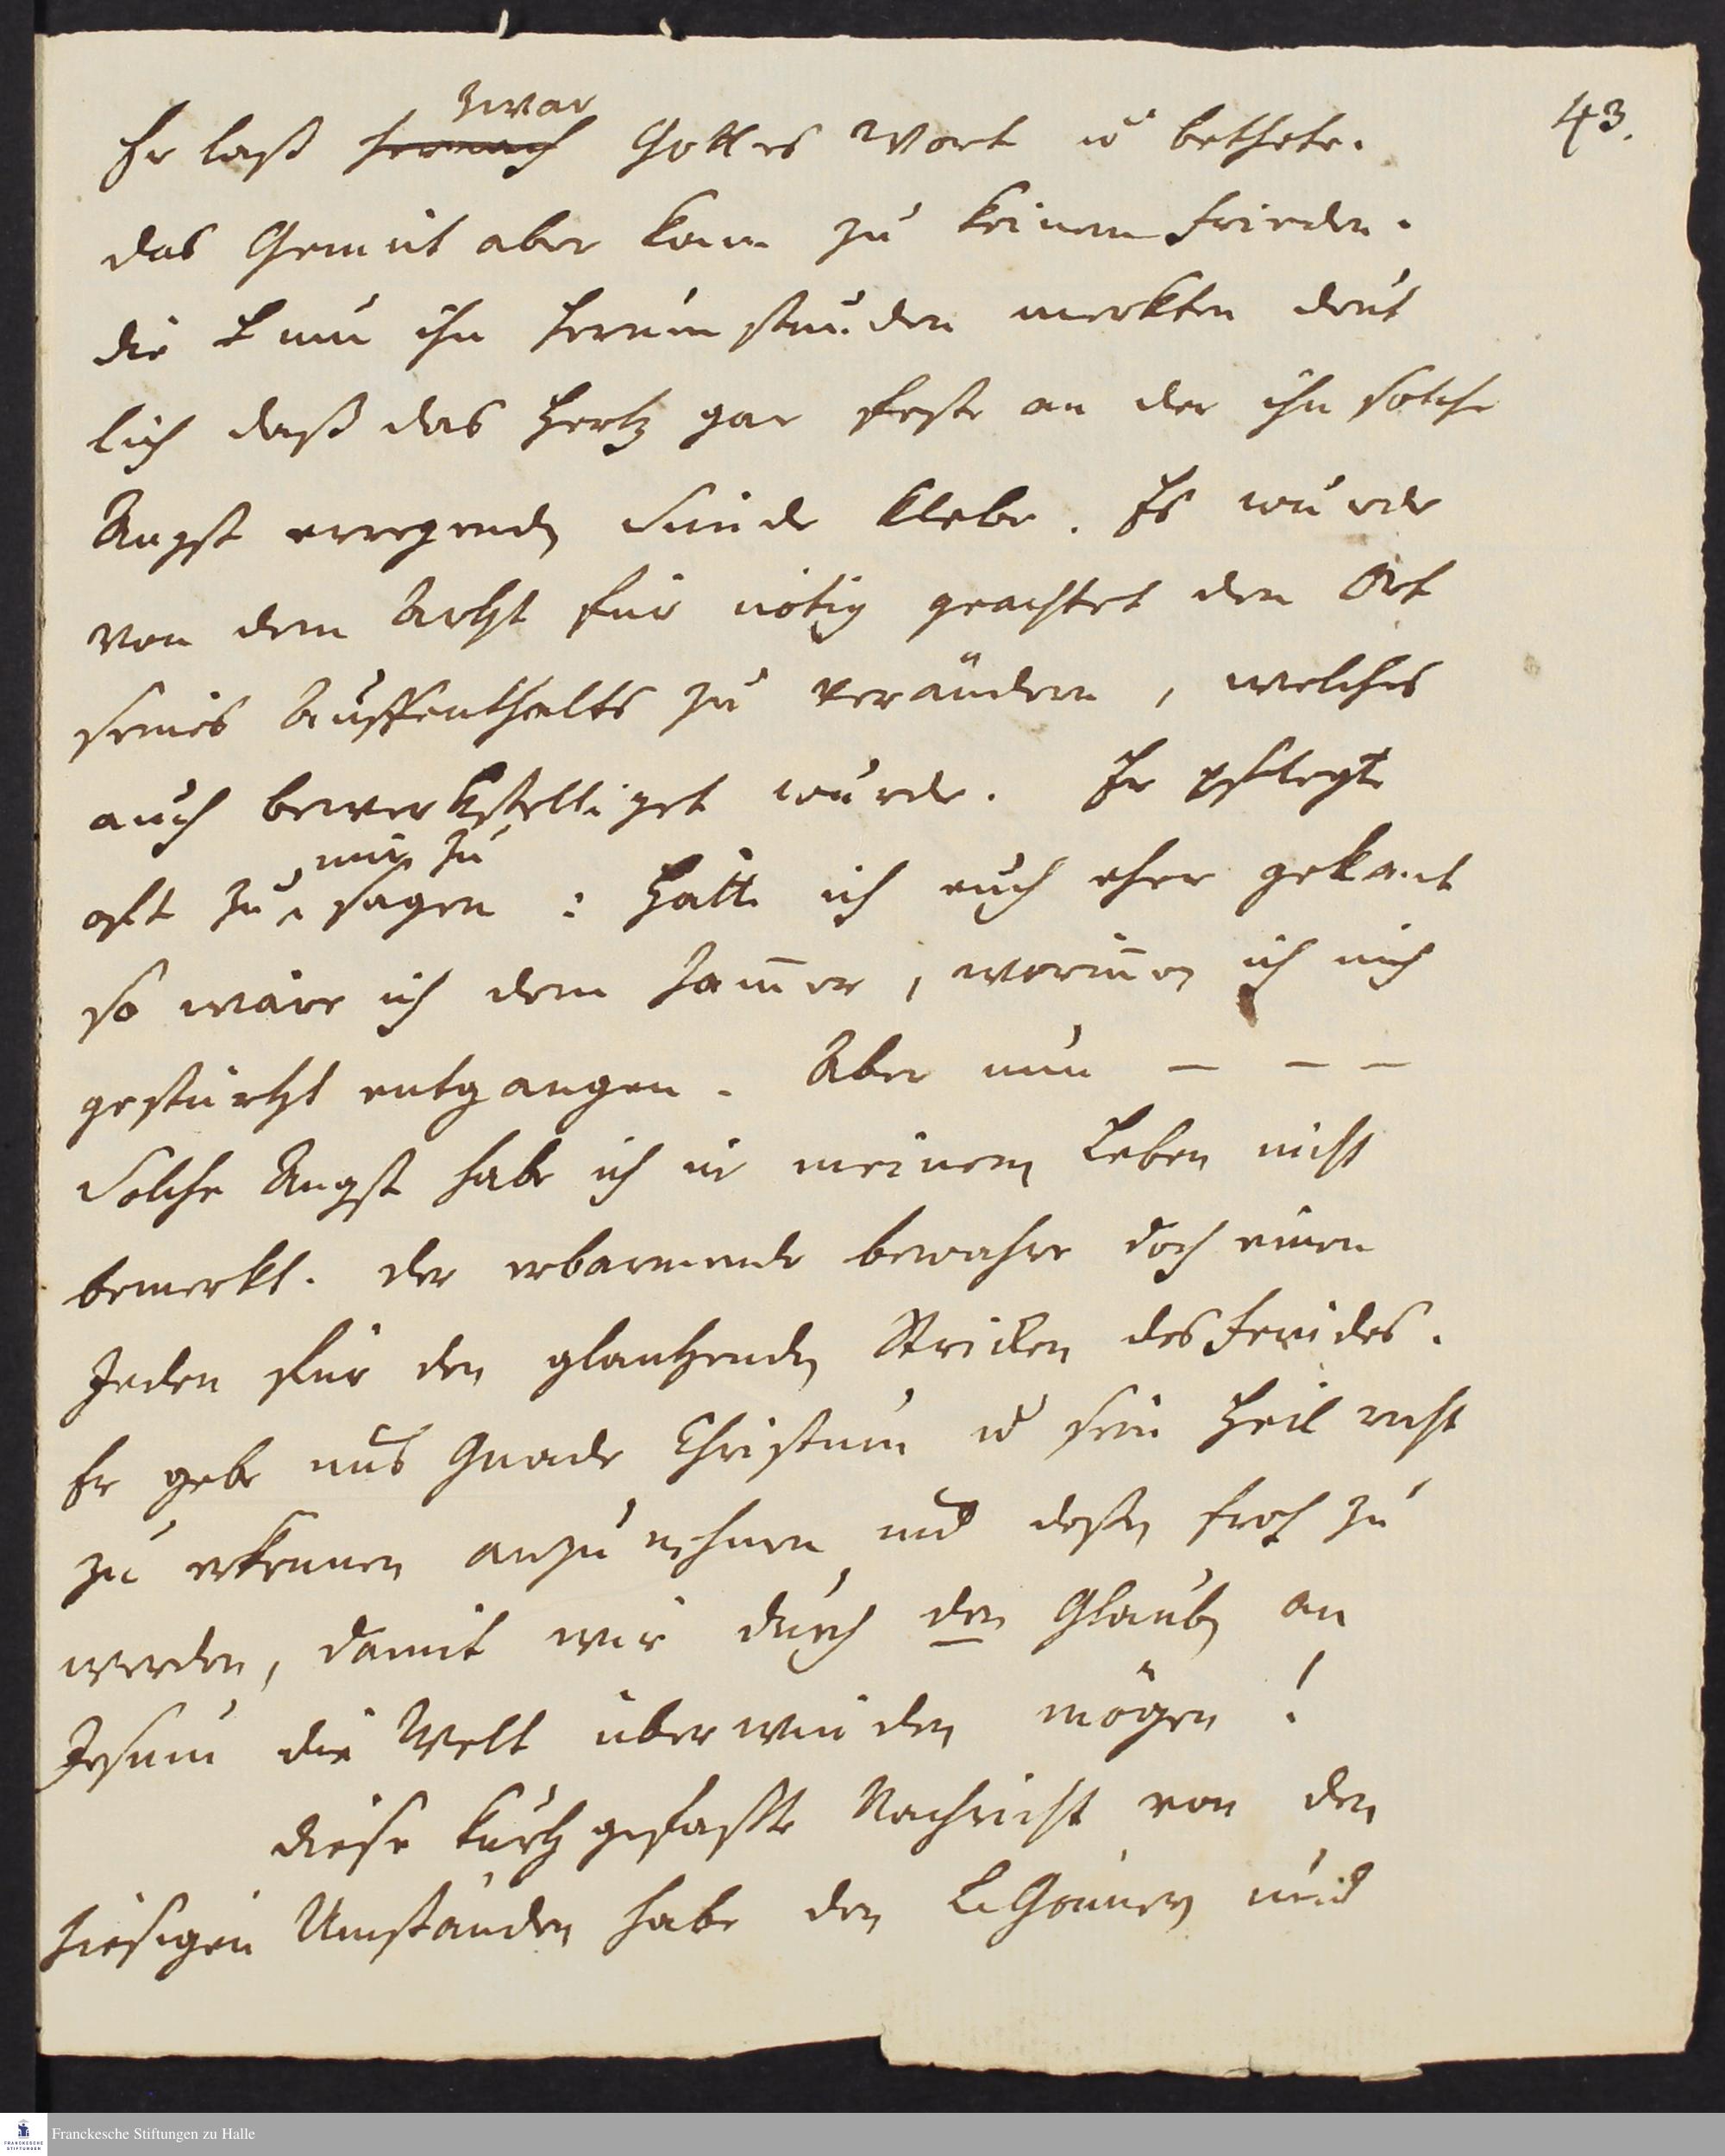 43.
zwar
Er laß hernach Gottes Wort u bethete.
das Gemüt aber kam zu keinem Frieden.
die um ihn herum stunden merkten deut
lich daß das Hertz gar feste an der ihn solche
Angst erregenden Sünde klebe. Es wurde
von dem Artzt für nötig geachtet den Ort
seines Auffenthalts zu verändern, welches
auch bewerkstelliget wurde. Er pflegte
mir zu
oft zu sagen: Hätte ich euch eher gekant
so wäre ich dem Jam̄er, worin̄en ich mich
gestürtzt entgangen. Aber nun — — —
Solche Angst habe ich in meinem Leben nicht
bemerkt. der erbarmende bewahre doch einen
Jeden für den glantzenden Striken des Feindes.
Er gebe uns Gnade Christum u sein Heil recht
zu erkennen anzunehmen und deßen froh zu
werden, damit wir durch den Glauben an
Jesum die Welt überwinden mögen!
diese kurtz gefaßte Nachricht von den
hiesigen Umständen habe den Gönnern und
Franckesche Stiftungen zu Halle
FRANCKESCHE
STIFTUNGEN